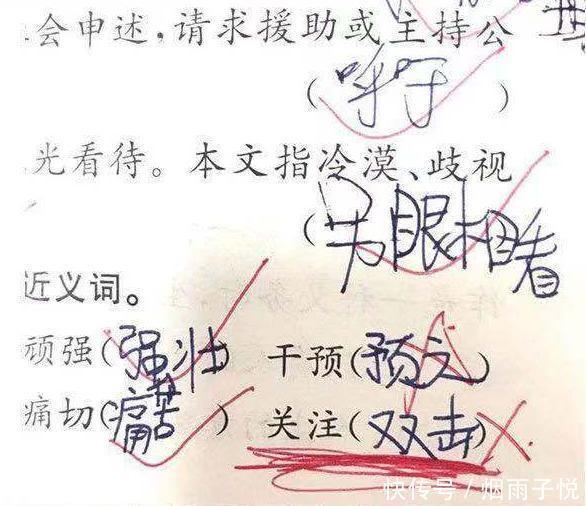 会申述,请求援助或主持公
(呼吁)
光看待。本文指冷漠、歧视
(另眼相看
近义词。
顽强(强壮) 干预(预
痛切(痛苦) 关注(双击)
快传号/烟雨子悦